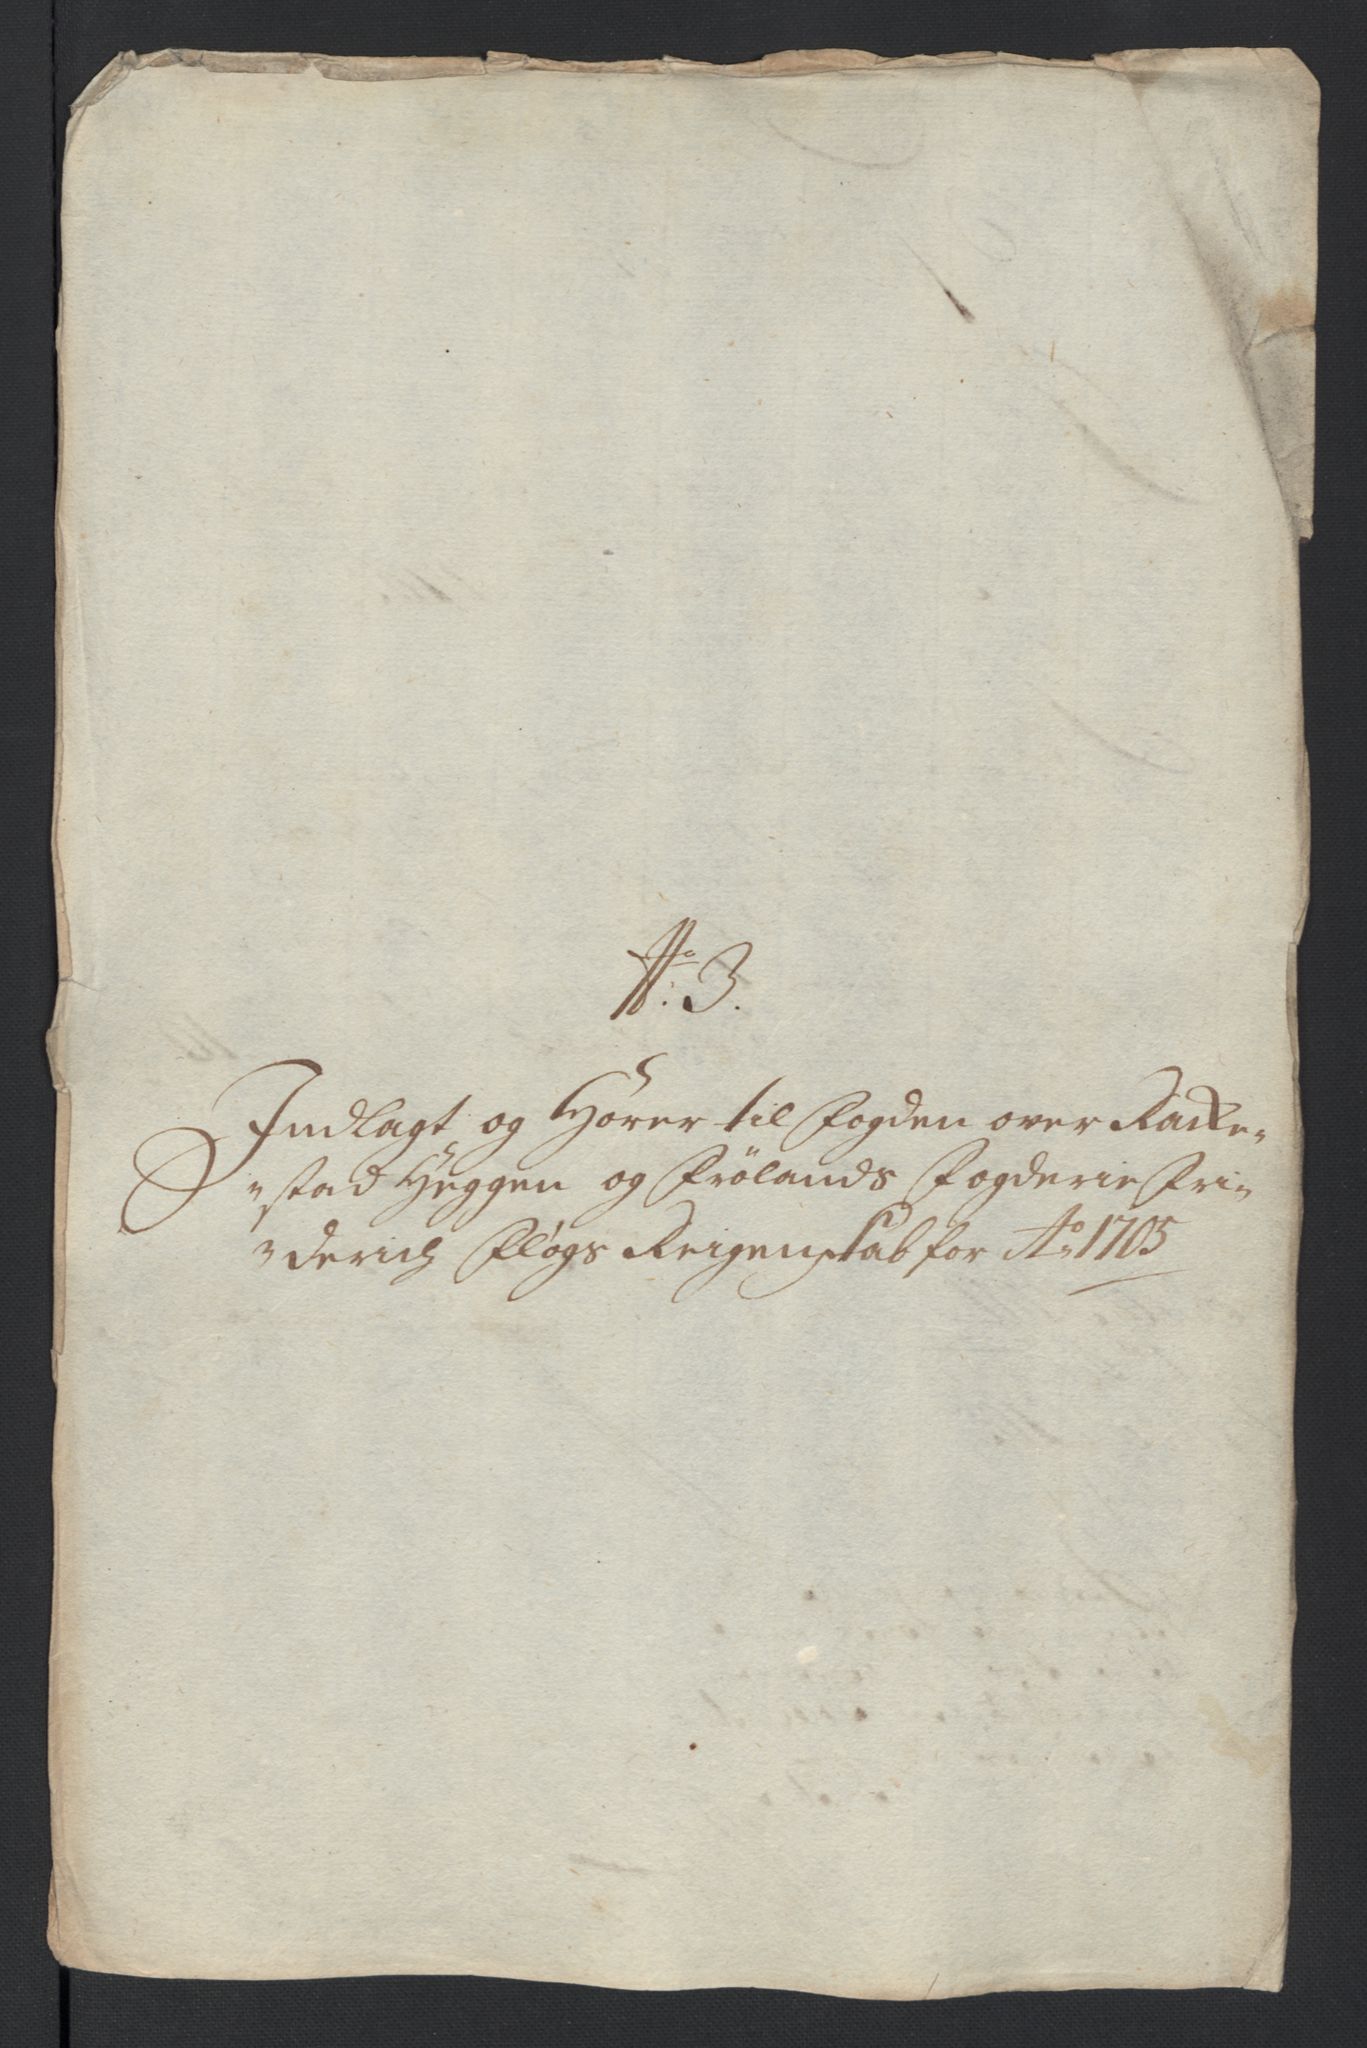 No: 3.
Indlagt og Hörer til Fogden over Racke-
=stad Heggen og Frölands Fogderie Fri-
=derich Fløgs Reigenskab for Ao 1705